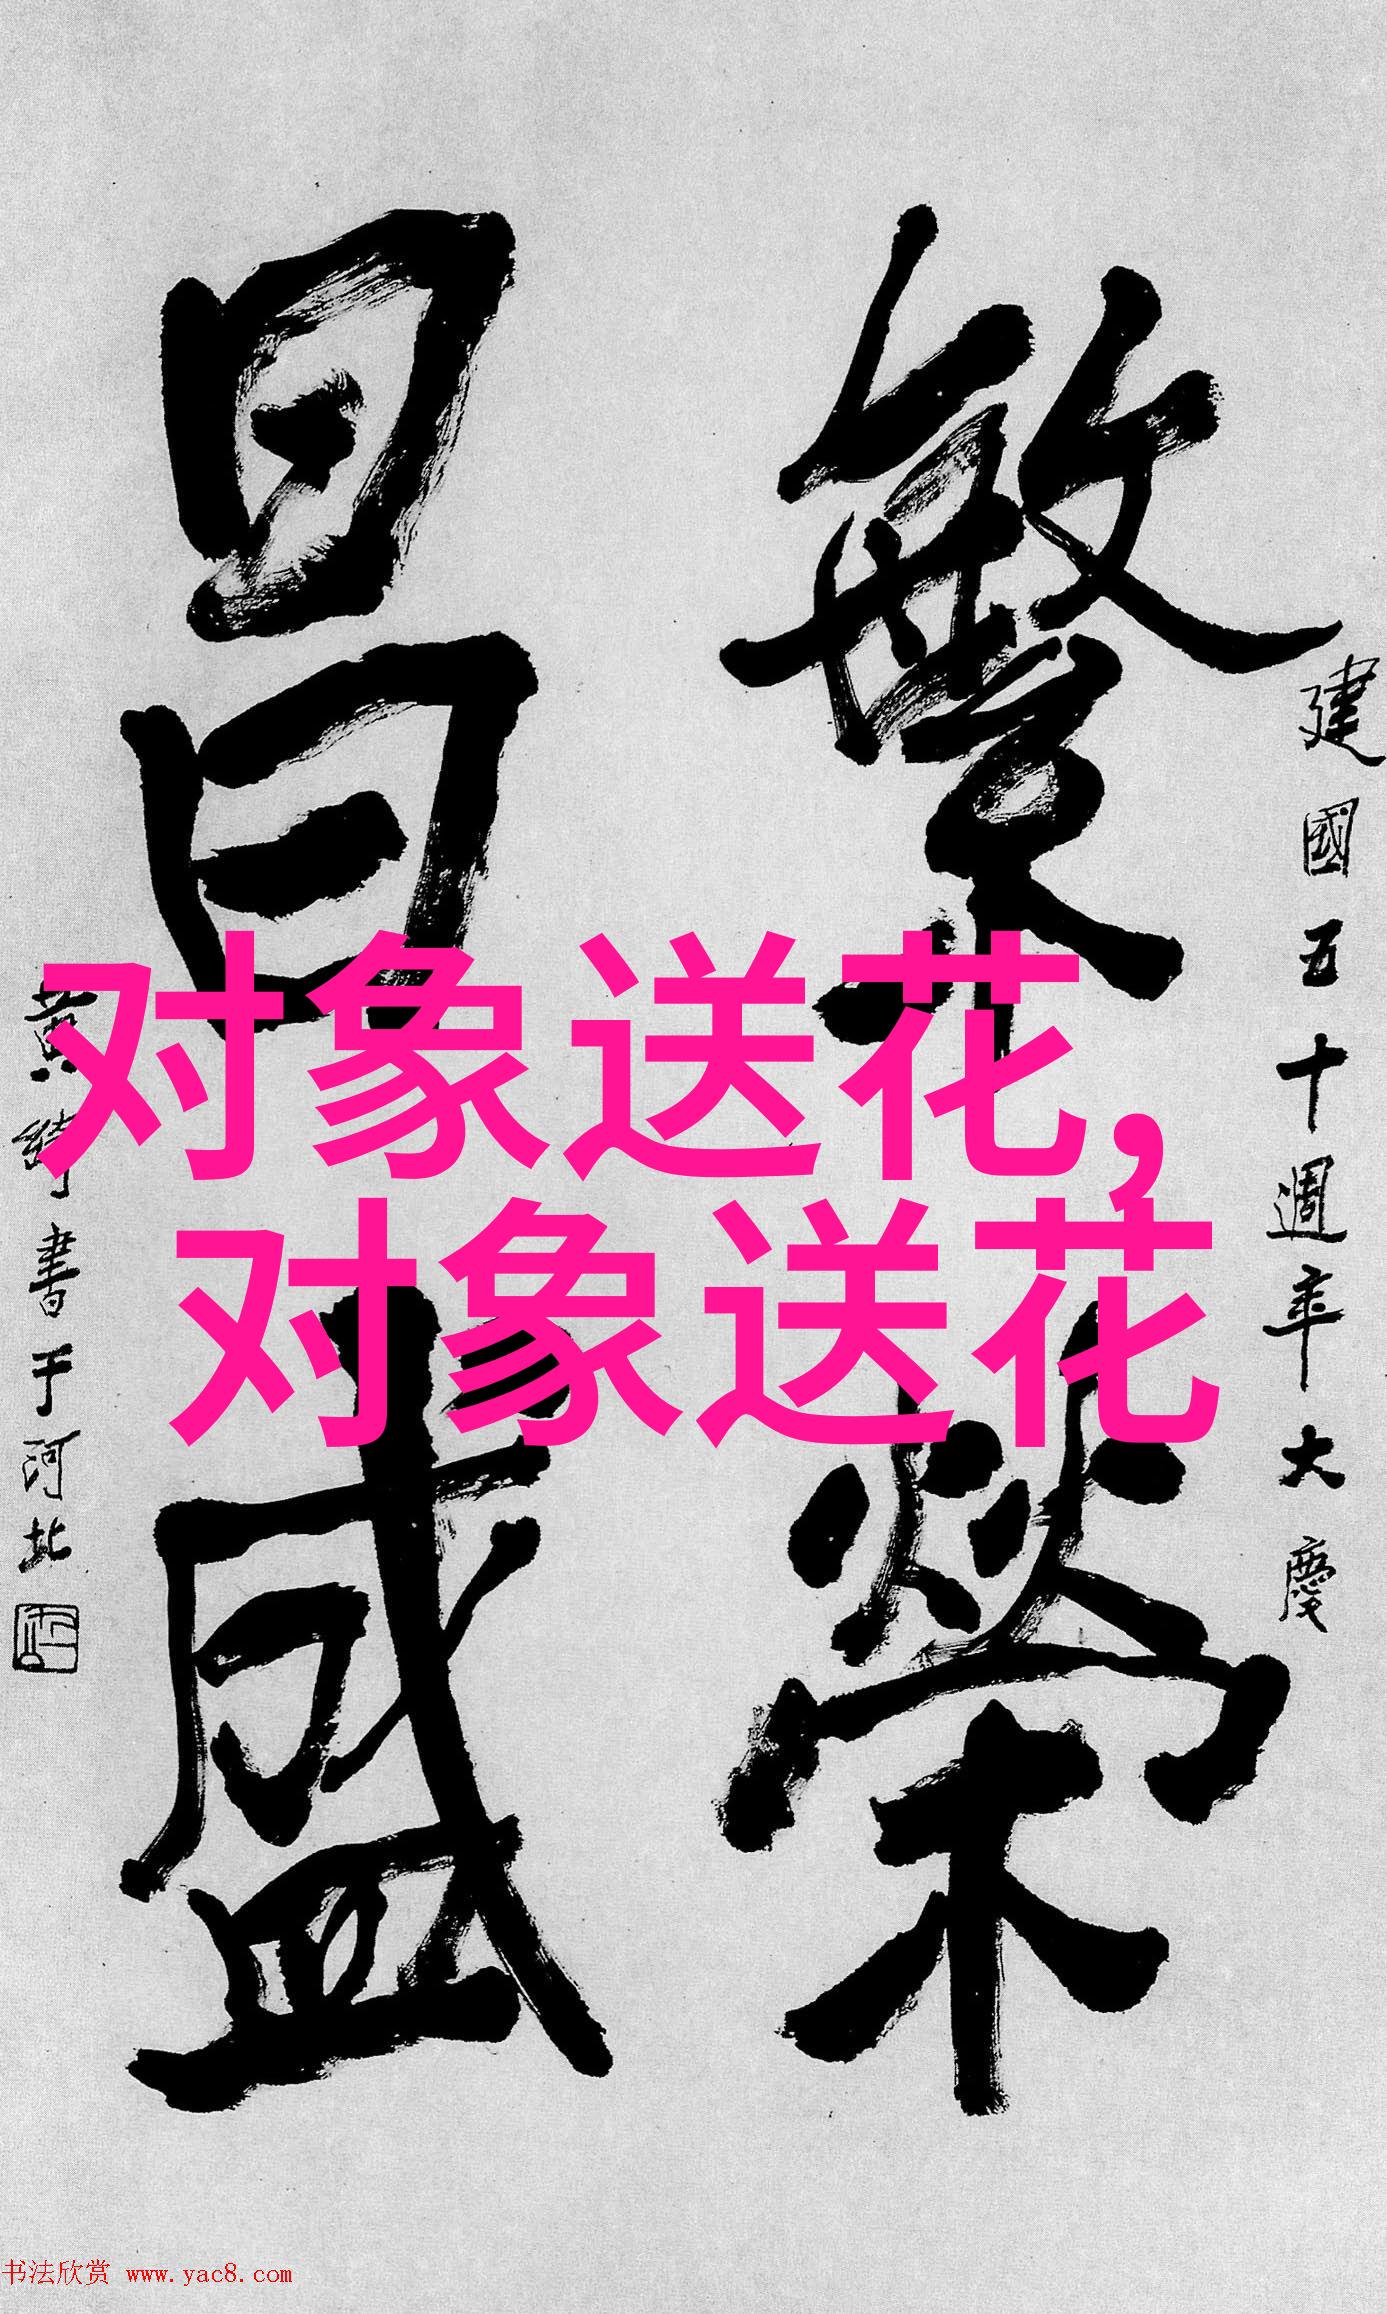 建國五十週年大慶
繁榮
昌盛
黄綺書于河北
对象送花,
对象送花
书法欣赏 www.yac8.com